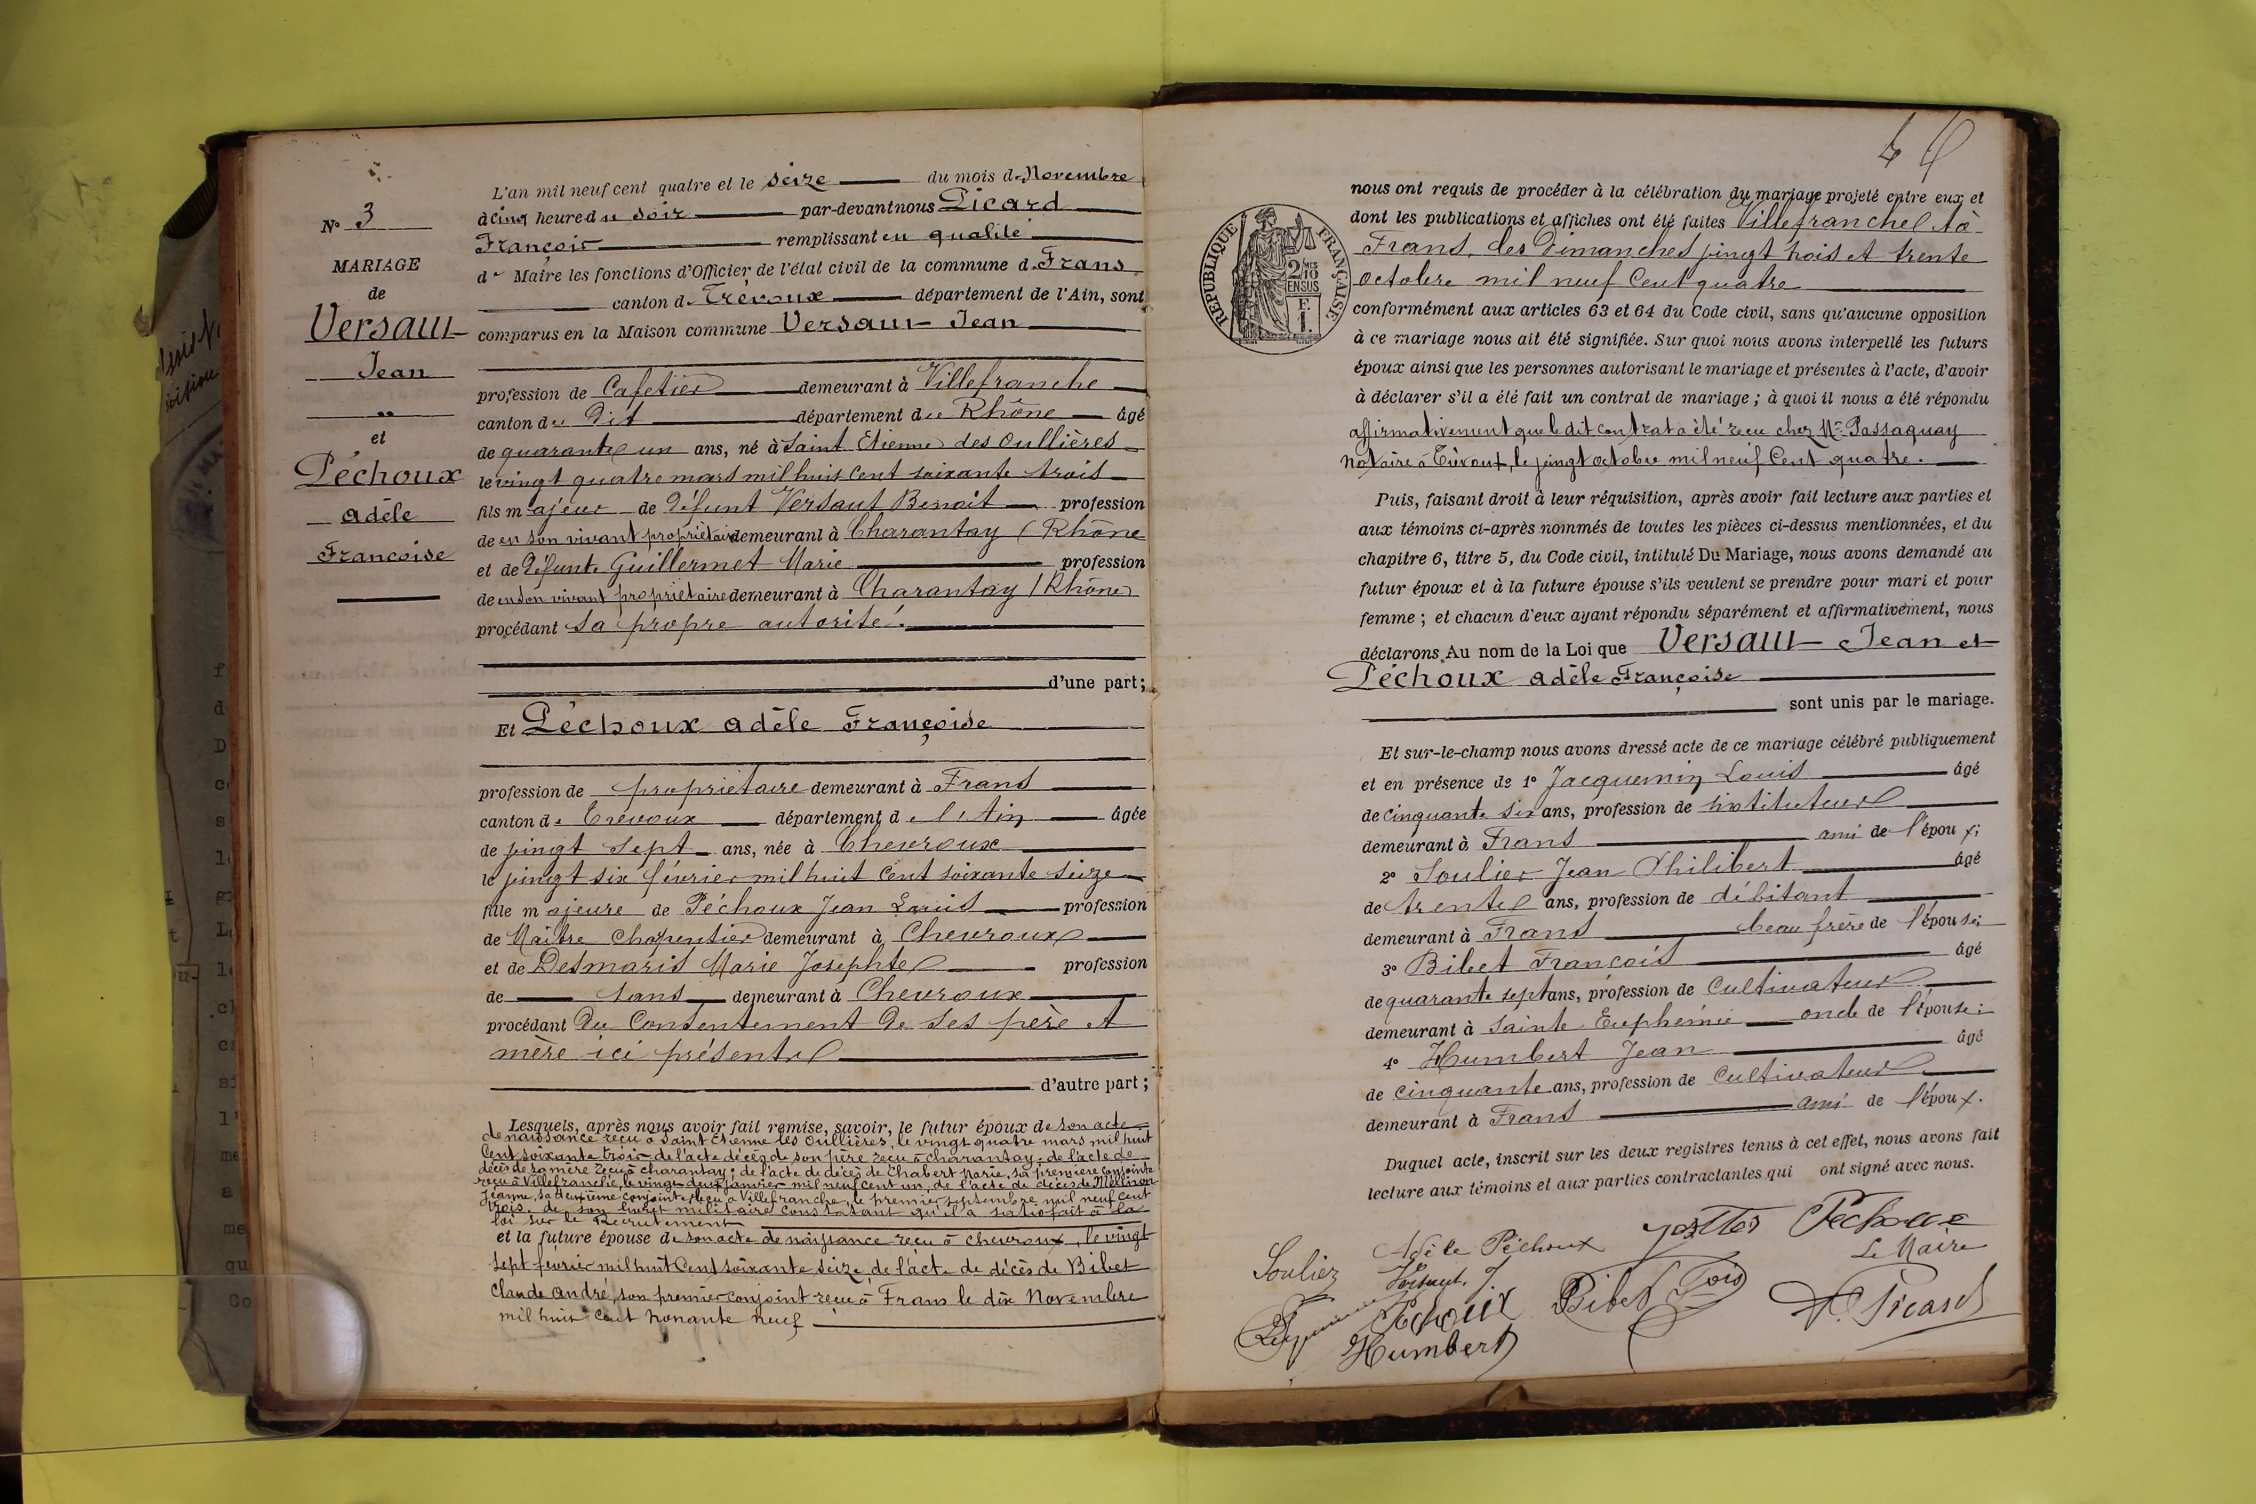 N° 3
MARIAGE
de
Versaut
Jean
"
et
Péchoux
Adèle
Françoise
L'an mil neuf cent quatre et le seize du mois de Novembre
à cinq heure du soir par-devant nous Picard
François remplissant en qualité
de Maire les fonctions d'Officier de l'état civil de la commune de Frans
canton de Trévoux département de l'Ain, sont
comparus en la Maison commune Versaut Jean
profession de Cafetier demeurant à Villefranche
canton du dit département du Rhône âgé
de quarante un ans, né à Saint Etienne des Oullières
le vingt quatre mars mil huit cent soixante trois
fils majeur de Défunt Versaut Benoit profession
de en son vivant propriétaire demeurant à Charantay (Rhône
et de Défunte Guillermet Marie profession
de en son vivant propriétaire demeurant à Charantay (Rhône)
procédant sa propre autorité.
d'une part;
Et Péchoux Adèle Françoise
profession de propriétaire demeurant à Frans
canton de Trévoux département de l'Ain âgée
de vingt sept ans, née à Chevroux
le vingt six février mil huit cent soixante seize
fille majeure de Péchoux Jean Louis profession
de Maître Charpentier demeurant à Chevroux
et de Desmaris Marie Josephte profession
de sans demeurant à Chevroux
procédant du consentement de ses père et
mère ici présents
d'autre part;
Lesquels, après nous avoir fait remise, savoir, le futur époux de son acte
de naissance reçu à Saint Etienne les Oullières, le vingt quatre mars mil huit
cent soixante trois de l'acte décès de son père reçu à Charantay, de l'acte de
décès de sa mère reçu à Charantay; de l'acte de décès de Chabert Marie, sa première conjointe
reçu à Villefranche, le vingt deux janvier mil neuf cent un, de l'acte de décès de Mellinon
Jeanne, sa deuxième conjointe, reçu à Villefranche, le premier septembre mil neuf cent
trois, de son livret militaire constatant qu'il a satisfait à la
loi sur le Recrutement
et la future épouse de son acte de naissance reçu à Chevroux, le vingt
sept février mil huit cent soixante seize, de l'acte de décès de Bibet
Claude André, son premier conjoint reçu à Frans le dix Novembre
mil huit cent nonante neuf
4
nous ont requis de procéder à la célébration du mariage projeté entre eux et
dont les publications et affiches ont été faites Villefranche et à
Frans, les Dimanches vingt trois et trente
octobre mil neuf cent quatre
conformément aux articles 63 et 64 du Code civil, sans qu'aucune opposition
à ce mariage nous ait été signifiée. Sur quoi nous avons interpellé les futurs
époux ainsi que les personnes autorisant le mariage et présentes à l'acte, d'avoir
à déclarer s'il a été fait un contrat de mariage; à quoi il nous a été répondu
affirmativement que le dit contrat a été reçu chez Mr Passaquay
Notaire à Trévoux, le vingt octobre mil neuf cent quatre.
Puis, faisant droit à leur réquisition, après avoir fait lecture aux parties et
aux témoins ci-après nommés de toutes les pièces ci-dessus mentionnées, et du
chapitre 6, titre 5, du Code civil, intitulé Du Mariage, nous avons demandé au
futur époux et à la future épouse s'ils veulent se prendre pour mari et pour
femme; et chacun d'eux ayant répondu séparément et affirmativement, nous
déclarons Au nom de la Loi que Versaut Jean et
Péchoux Adèle Françoise
sont unis par le mariage.
Et sur-le-champ nous avons dressé acte de ce mariage célébré publiquement
et en présence de 1° Jacquemin Louis âgé
de cinquante six ans, profession de instituteur
demeurant à Frans ami de l'époux;
2° Soulier Jean Philibert âgé
de trente ans, profession de débitant
demeurant à Frans beau frère de l'épouse;
3° Bibet François âgé
de quarante sept ans, profession de Cultivateur
demeurant à Sainte Euphémie oncle de l'épouse;
4° Humbert Jean âgé
de cinquante ans, profession de cultivateur
demeurant à Frans ami de l'époux.
Duquel acte, inscrit sur les deux registres tenus à cet effet, nous avons fait
lecture aux témoins et aux parties contractantes qui ont signé avec nous.
RÉPUBLIQUE FRANÇAISE
Soulier Adèle Péchoux Péchoux
Le Maire
Versaut J.
Péchoux Bibet Fois Picard
Humbert